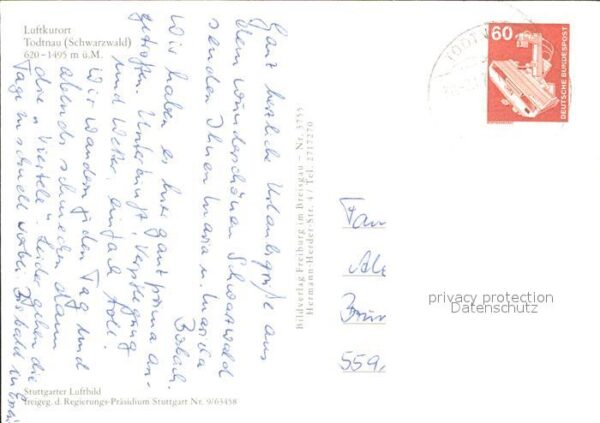 Luftkurort
Todtnau (Schwarzwald)
620–1495 m ü.M.
Ganz herzliche Urlaubsgrüße aus
dem wunderschönen Schwarzwald
senden Ihnen Maria u.
Wir haben es hier ganz prima an-
getroffen. Unterkunft, Verpflegung
und Wetter, einfach toll.
Wir wandern jeden Tag und
abends schmecken dann
die "Viertele". Leider gehen die
Tage zu schnell vorbei. Bis bald in
Stuttgarter Luftbild
freigeg. d. Regierungs-Präsidium Stuttgart Nr. 9/63458
Bildverlag Freiburg im Breisgau – Nr. 3755
Hermann-Herder-Str. 4 / Tel. 2717270
TODTN
60
DEUTSCHE BUNDESPOST
Fam
Ale
559
privacy protection
Datenschutz